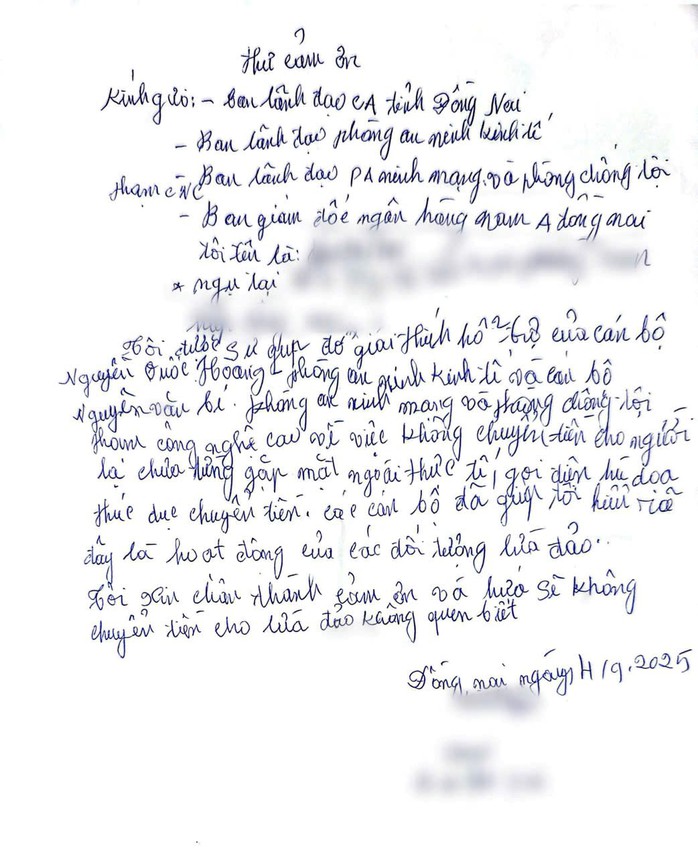 Thư cảm ơn
Kính gửi: - Ban lãnh đạo CA tỉnh Đồng Nai
- Ban lãnh đạo phòng an ninh kinh tế
- Ban lãnh đạo PA ninh mạng và phòng chống tội
phạm CNC
- Ban giám đốc ngân hàng Nam A đồng nai
tôi tên là:
* ngụ tại
Tôi được sự giúp đỡ giải thích hỗ trợ của cán bộ
Nguyễn Quốc Hoàng - phòng an ninh kinh tế và cán bộ
Nguyễn văn bí. phòng an ninh mạng và phòng chống tội
phạm công nghệ cao về việc không chuyển tiền cho người
lạ chưa từng gặp mặt ngoài thực tế, gọi điện hù dọa
thúc dục chuyển tiền. các cán bộ đã giúp tôi hiểu
đây là hoạt động của các đối tượng lừa đảo..
Tôi xin chân thành cảm ơn và hứa sẽ không
chuyển tiền cho lừa đảo không quen biết
Đồng nai ngày 4/9.2025